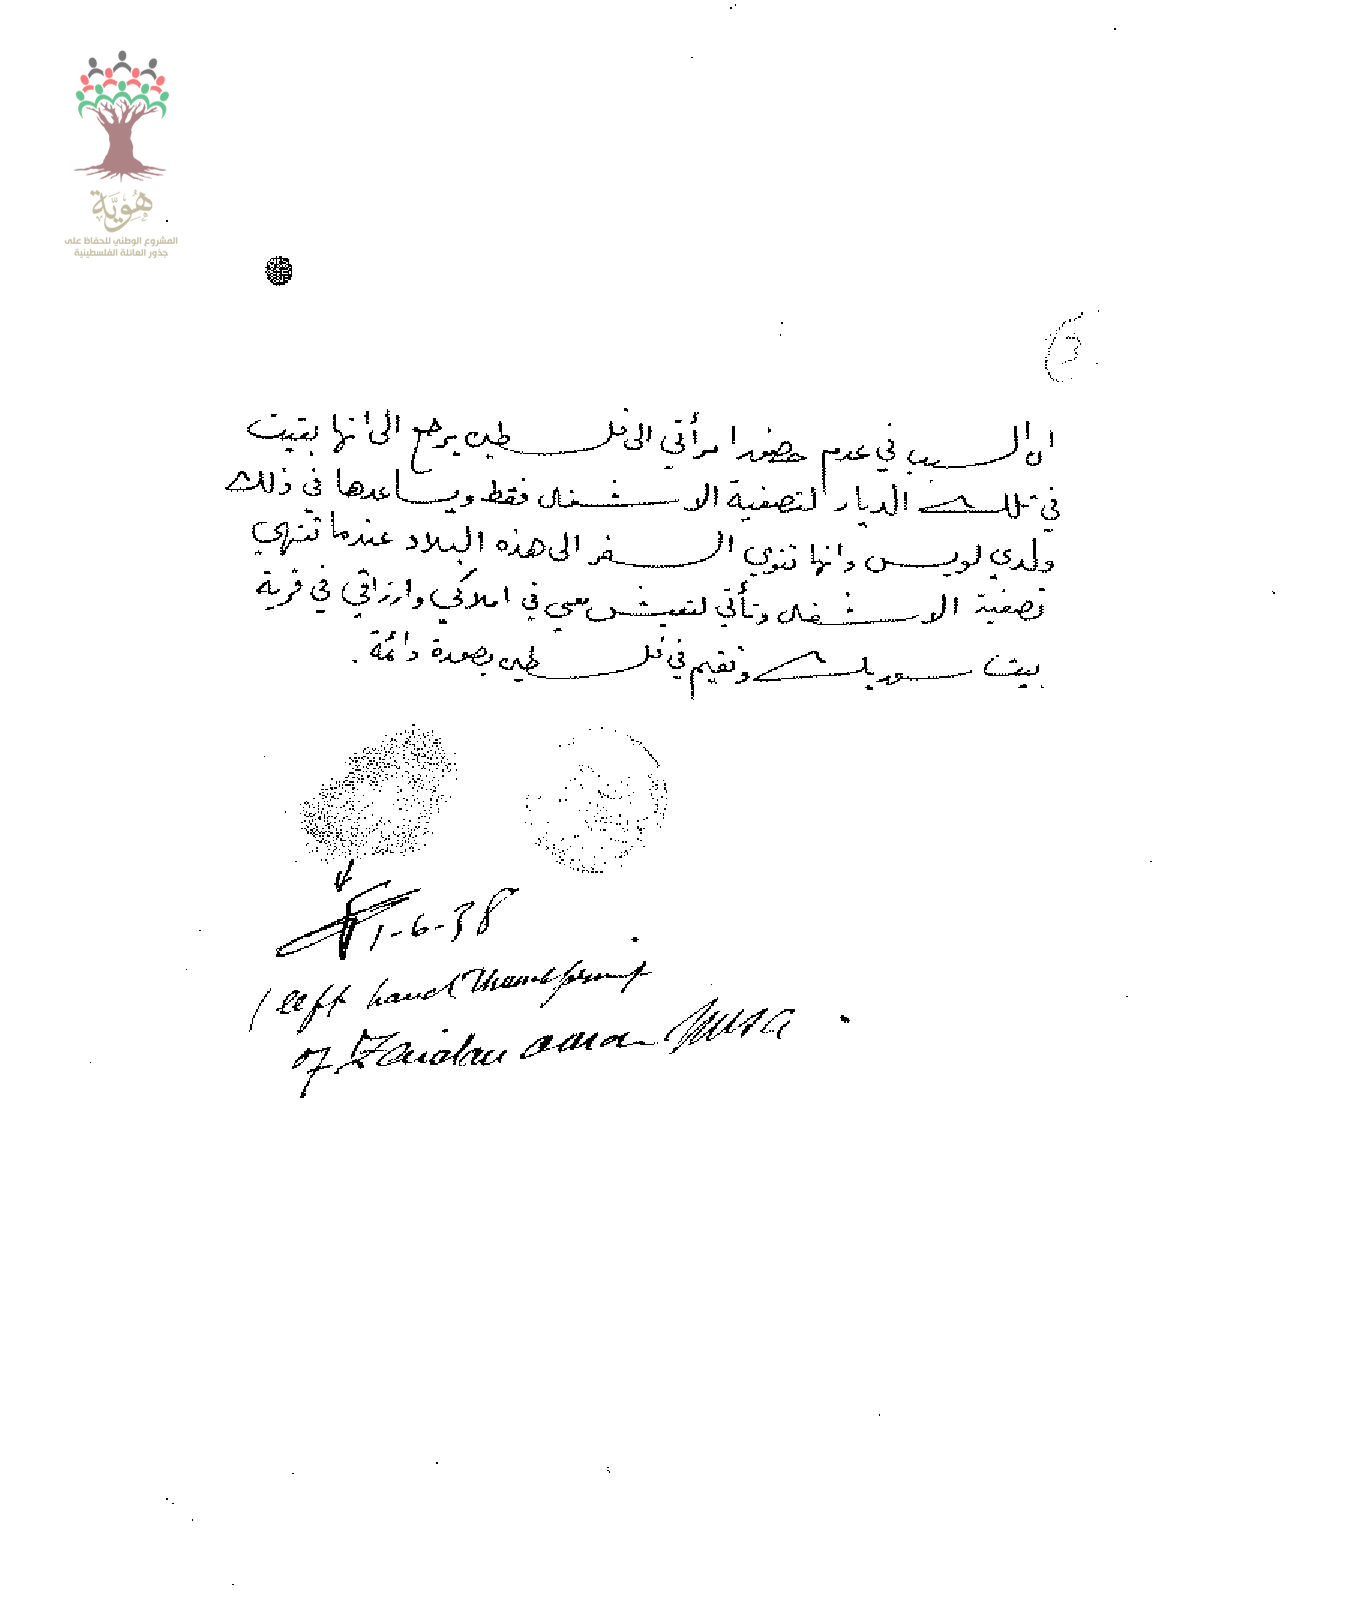 هُوِيَّة
المشروع الوطني للحفاظ على
جذور العائلة الفلسطينية
3
ان السبب في عدم حضور امرأتي الى فلسطين يرجع الى انها بقيت
في تلك الديار لتصفية الاشغال فقط ويساعدها في ذلك
ولدي لويس وانها تنوي السفر الى هذه البلاد عندما تنتهي
تصفية الاشغال وتأتي لتعيش معي في املاكي وارزاقي في قرية
بيت سوريك وتقيم في فلسطين بصورة دائمة.
1-6-38
left hand thumbprint
of Zaidan Musa